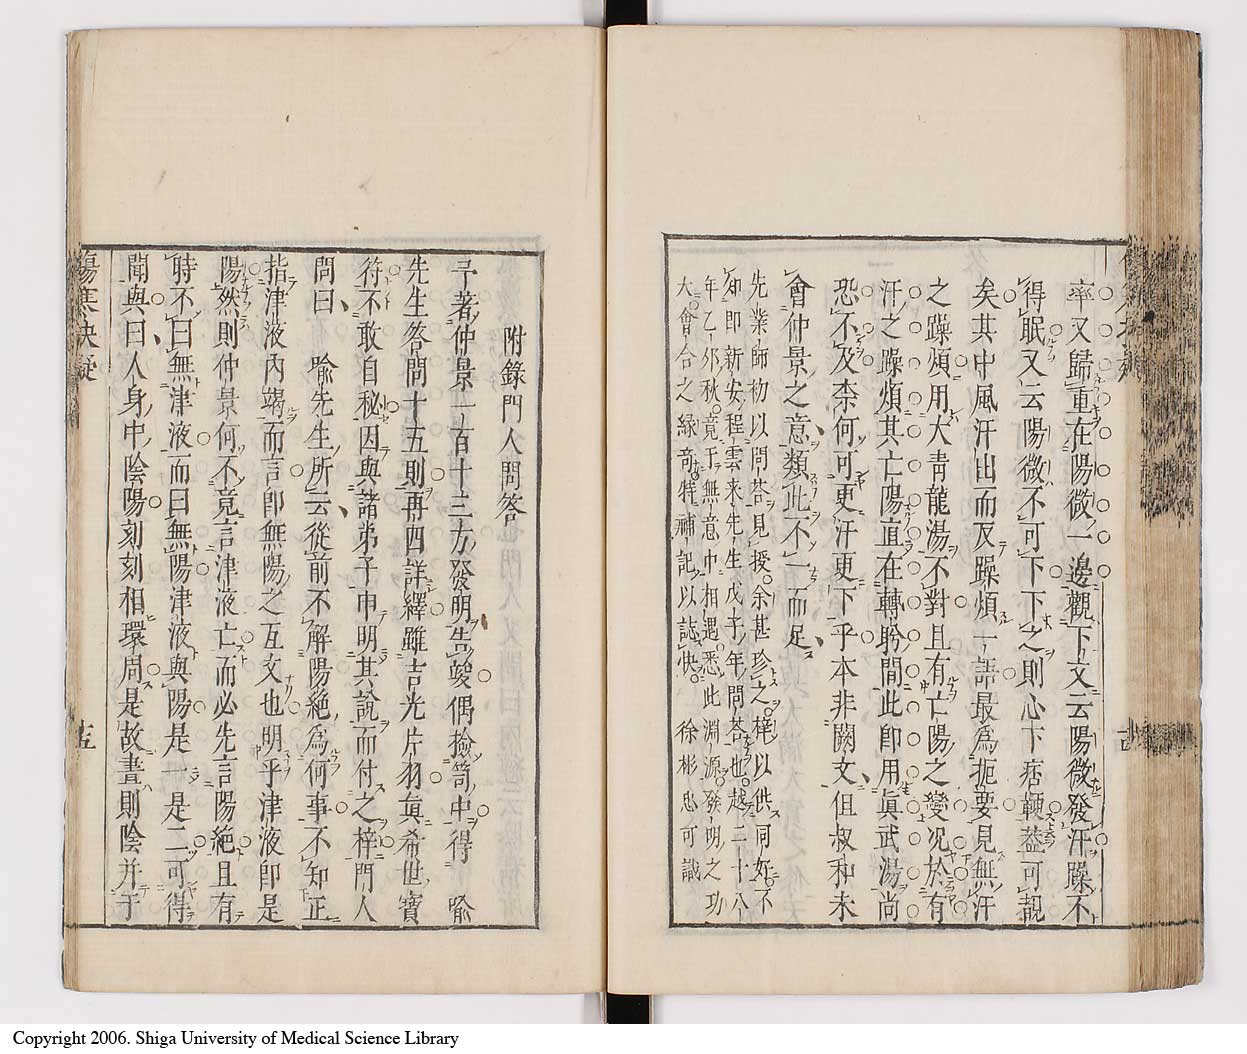 率又歸重在陽微一邊觀下文云陽微發汗躁不
得眠又云陽微不可下下之則心下痞鞕益可覩
矣其中風汗出而反躁煩一語最為扼要見無汗
之躁煩用大青龍湯不對且有亡陽之變況於有
汗之躁煩其亡陽直在轉盻間此即用眞武湯尚
恐不及柰何可更汗更下乎本非闕文但叔和未
會仲景之意類此不一而足
先業師初以問荅見授余甚珍之梓以供同好不
知即新安程雲來先生戊子年問荅也越二十八
年乙夘秋竟于無意中相遇悉此淵源發明之功
大會合之緣奇特補記以誌快 徐彬忠可識
十四
附錄門人問答
予著仲景一百十三方發明告竣偶撿笥中得 喩
先生答問十五則再四詳繹雖吉光片羽眞希世寶
符不敢自秘因與諸弟子申明其說而付之梓門人
問曰 喩先生所云從前不解陽絶為何事不知正
指津液內竭而言即無陽之互文也明乎津液即是
陽然則仲景何不竟言津液亡而必先言陽絶且有
時不曰無津液而曰無陽津液與陽是一是二可得
聞與曰人身中陰陽刻刻相環周是故晝則陰并于
傷寒抉疑
十五
Copyright 2006. Shiga University of Medical Science Library